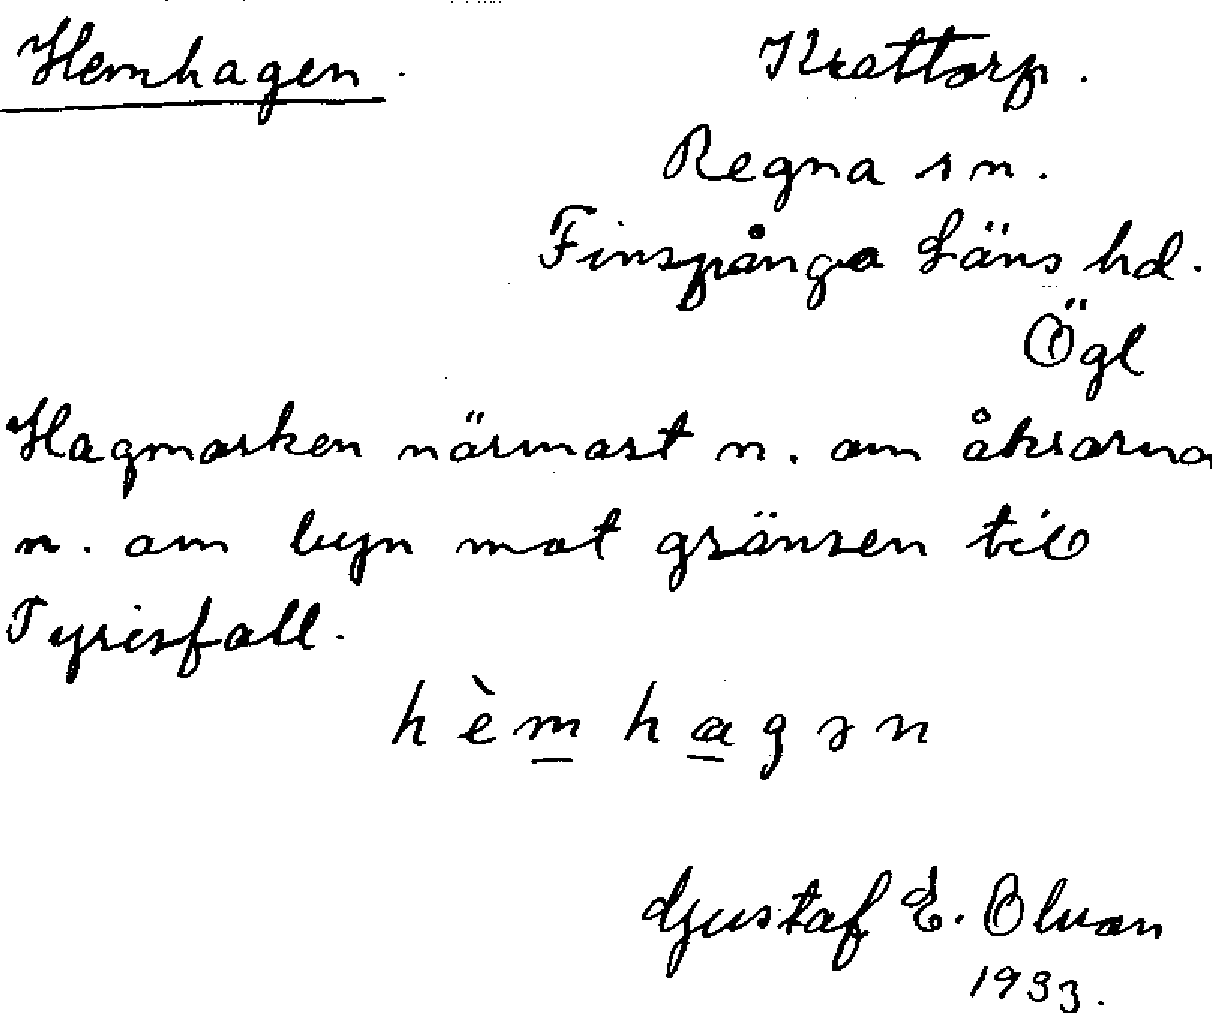 Hemhagen. Krattorp.
Regna sn.
Finspånga Läns hd.
Ögl
Hagmarken närmast n. om åkrarna
n. om byn mot gränsen till
Tyrisfall.
hèmhagən
Gustaf E. Olson
1933.